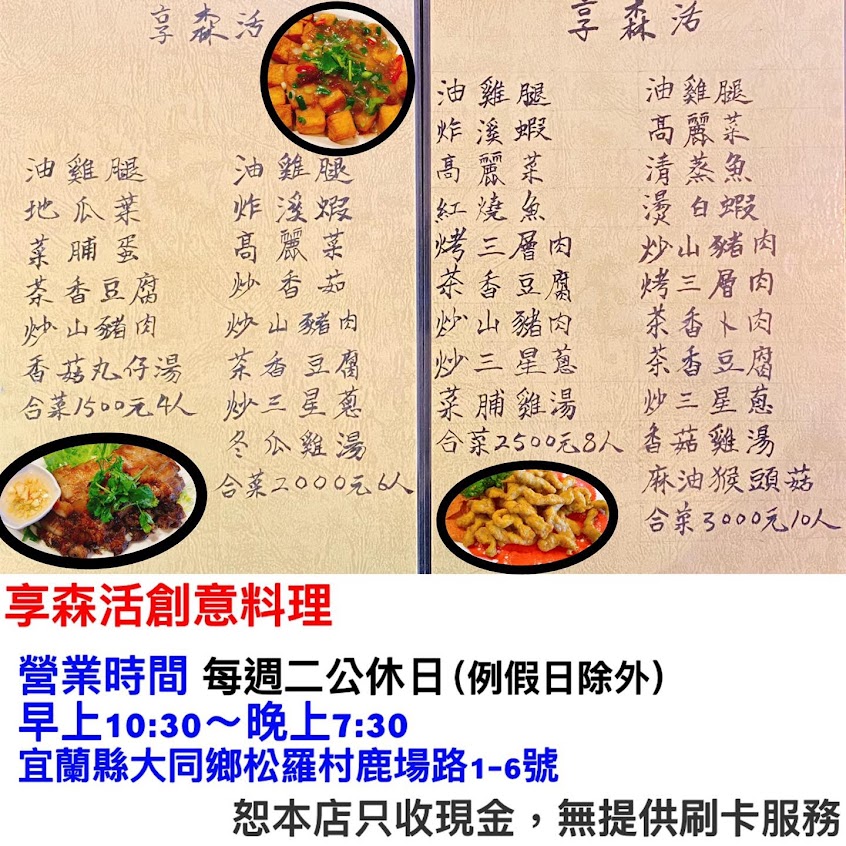 享森活
油雞腿
地瓜葉
菜脯蛋
茶香豆腐
炒山豬肉
香菇丸仔湯
合菜1500元4人
油雞腿
炸溪蝦
高麗菜
炒香茹
炒山豬肉
茶香豆腐
炒三星蔥
冬瓜雞湯
合菜2000元6人
享森活
油雞腿
炸溪蝦
高麗菜
紅燒魚
烤三層肉
茶香豆腐
炒山豬肉
炒三星蔥
菜脯雞湯
合菜2500元8人
油雞腿
高麗菜
清蒸魚
燙白蝦
炒山豬肉
烤三層肉
茶香卜肉
茶香豆腐
炒三星蔥
香菇雞湯
麻油猴頭菇
合菜3000元10人
享森活創意料理
營業時間 每週二公休日(例假日除外)
早上10:30～晚上7:30
宜蘭縣大同鄉松羅村鹿場路1-6號
恕本店只收現金，無提供刷卡服務